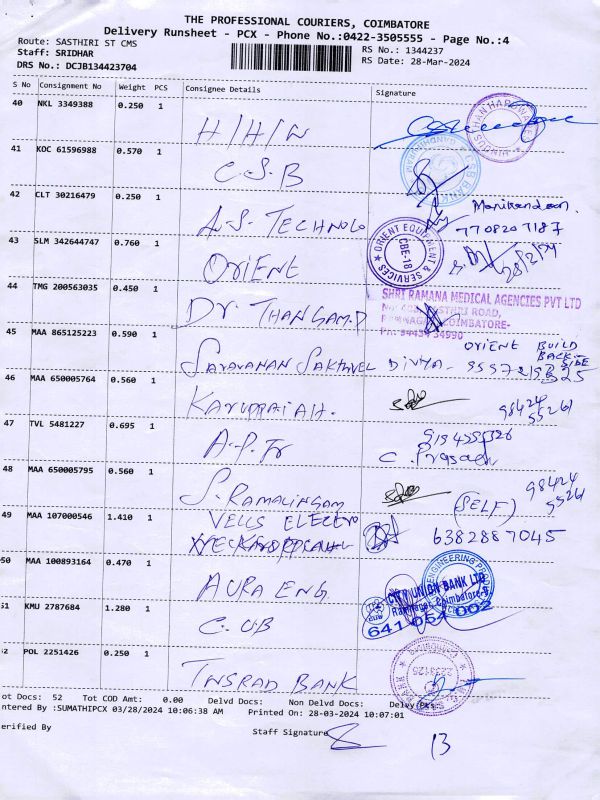 THE PROFESSIONAL COURIERS, COIMBATORE
Delivery Runsheet - PCX - Phone No.:0422-3505555 - Page No.:4
Route: SASTHIRI ST CMS
Staff: SRIDHAR
DRS No.: DCJB134423704
RS No.: 1344237
RS Date: 28-Mar-2024
S No Consignment No Weight PCS Consignee Details Signature
40 NKL 3349388 0.250 1 H/H/W
HINDUSTAN HARDWARE
41 KOC 61596988 0.570 1 C.S.B
CSB BANK
42 CLT 30216479 0.250 1 A.S. TECHNOLO Manikandan
7708207187
43 SLM 342644747 0.760 1 ORIENT
ORIENT EQUIPMENT & SERVICES
CBE-18
44 TMG 200563035 0.450 1 Dr. THANGAM.D
SHRI RAMANA MEDICAL AGENCIES PVT LTD
SASTHRI ROAD,
RAMNAGAR, COIMBATORE-
Ph: 94434 34990
45 MAA 865125223 0.590 1 SARAVANAN SAKTHIVEL DIVYA -
ORIENT BUILD
BACK SIDE
46 MAA 650005764 0.560 1 KARUPPAIAH.
98424
55261
47 TVL 5481227 0.695 1 A.P. Tr
C. Prasad
48 MAA 650005795 0.560 1 S. RAMALINGAM
98424
55261
(SELF)
49 MAA 107000546 1.410 1 VELLS ELECTRO
6382887045
50 MAA 100893164 0.470 1 AURA ENG.
ENGINEERING
51 KMU 2787684 1.280 1 C.U.B
CITY UNION BANK LTD
Ramnagar, Coimbatore-9
641 054 002
52 POL 2251426 0.250 1 TNSRAD BANK
ot Docs: 52 Tot COD Amt: 0.00 Delvd Docs: Non Delvd Docs: Delvy Pks:
ntered By :SUMATHIPCX 03/28/2024 10:06:38 AM Printed On: 28-03-2024 10:07:01
erified By Staff Signature
13